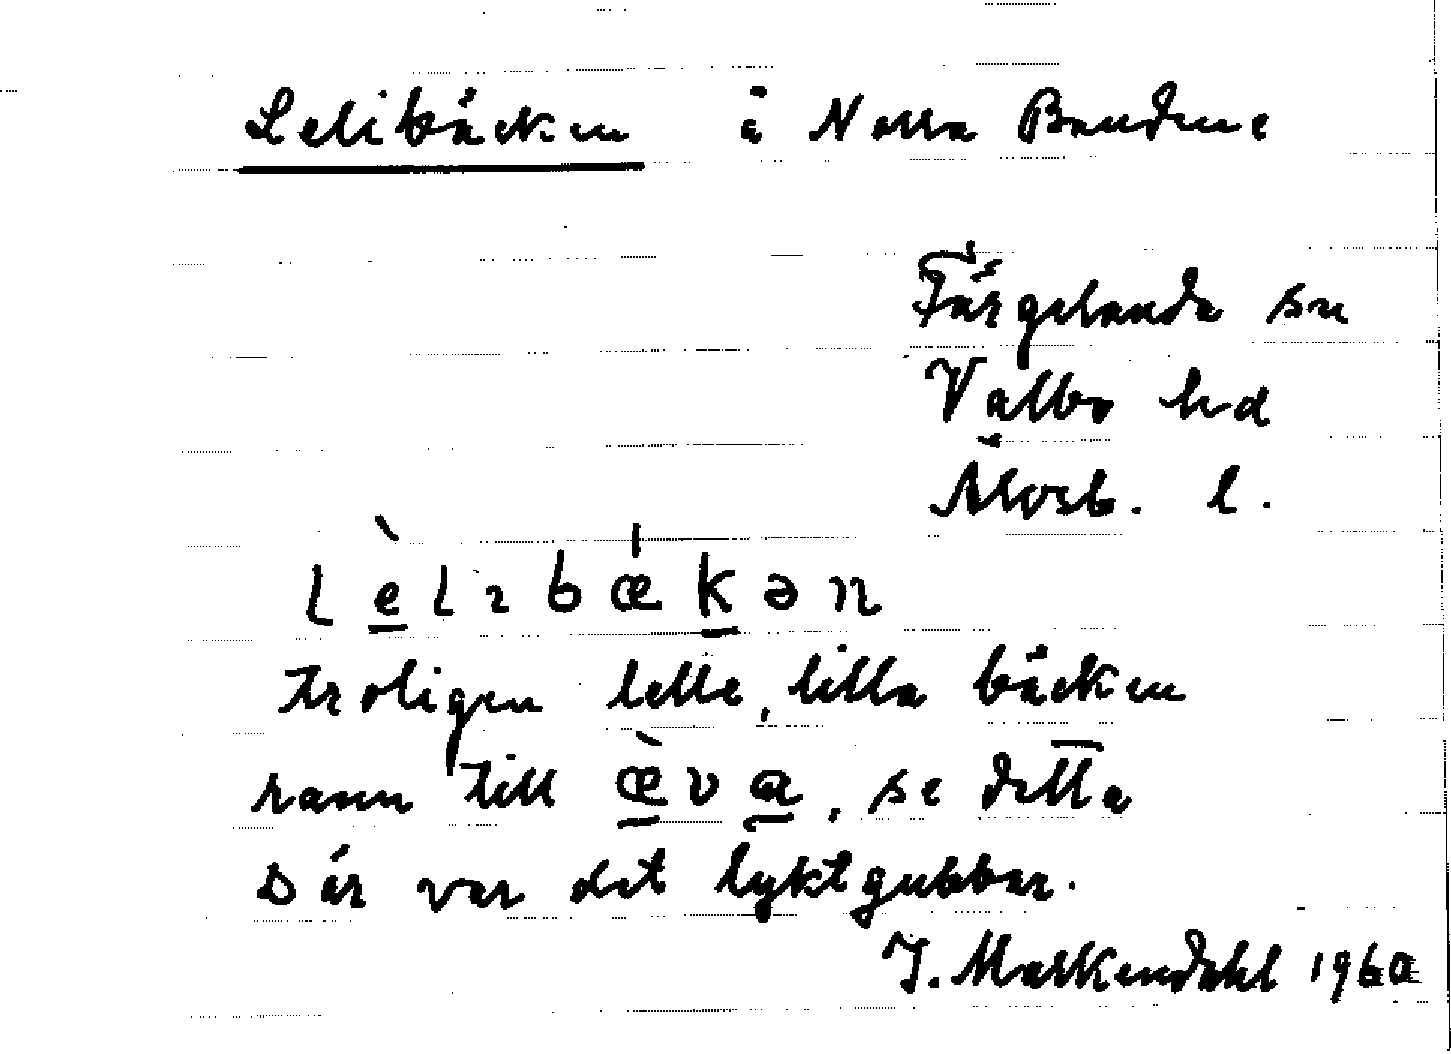 Lelibäcken å Norra Bandene
Färgelanda sn
Valbo hd
Älvsb. l.
lèlɪbǽkən
troligen lelle, lilla bäcken
rann till æ̀va, se detta
Där var det lyktgubbar.
J. Markendahl 1960